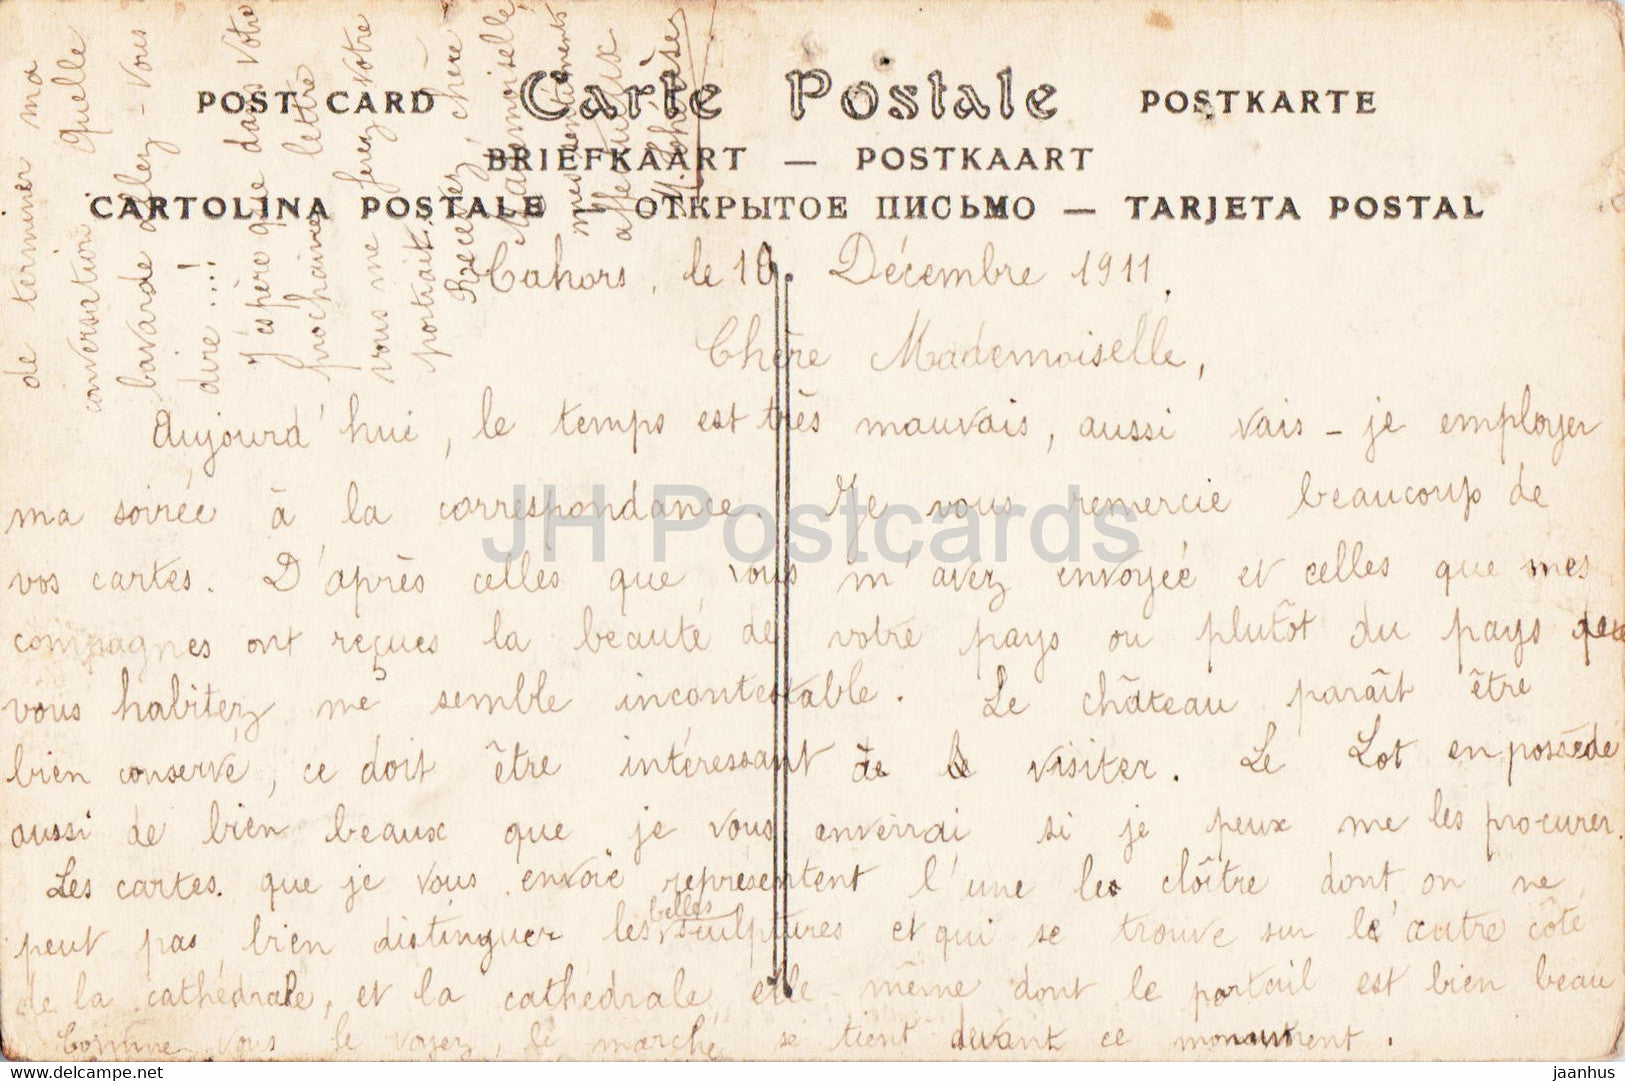 POST CARD Carte Postale POSTKARTE
BRIEFKAART — POSTKAART
CARTOLINA POSTALE — ОТКРЫТОЕ ПИСЬМО — TARJETA POSTAL
Cahors, le 10. Décembre 1911.
Chère Mademoiselle,
Aujourd'hui, le temps est très mauvais, aussi vais-je employer
ma soirée à la correspondance. Je vous remercie beaucoup de
vos cartes. D'après celles que vous m'avez envoyée et celles que mes
compagnes ont reçues la beauté de votre pays ou plutôt du pays que
vous habitez me semble incontestable. Le château paraît être
bien conservé, ce doit être intéressant de le visiter. Le Lot en possède
aussi de bien beaux que je vous enverrai si je peux me les procurer.
Les cartes que je vous envoie représentent l'une le cloître dont on ne
peut pas bien distinguer les belles sculptures et qui se trouve sur l'autre côté
de la cathédrale, et la cathédrale elle-même dont le portail est bien beau
Comme vous le voyez, le marché se tient devant ce monument.
de terminer ma
conversation Quelle
bavarde allez-vous
dire...!
J'espère que dans votre
prochaine lettre
vous me ferez votre
portrait.
Recevez, chère
Mademoiselle,
mes sentiments
affectueux
JH Postcards
www.delcampe.net
jaanhus